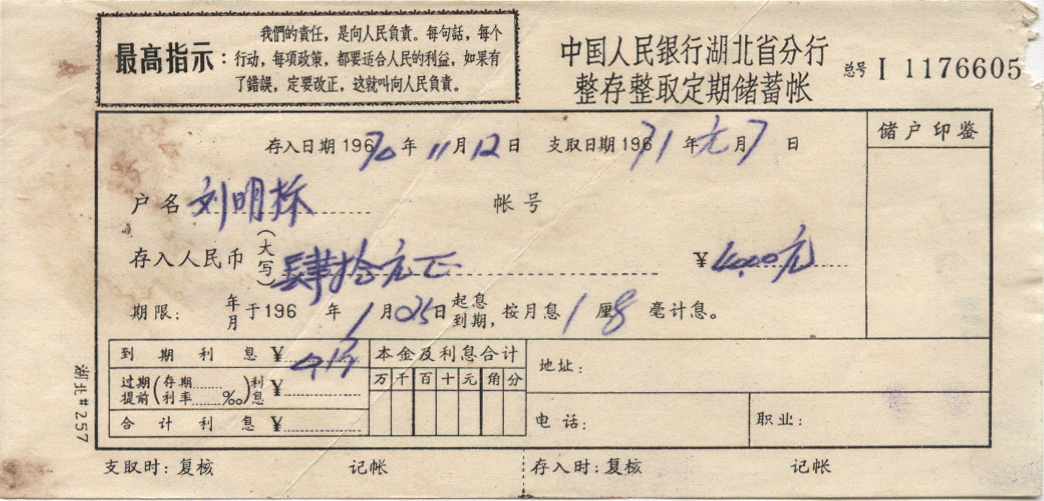 最高指示：
我們的責任，是向人民負責。每句話，每个
行动，每項政策，都要适合人民的利益，如果有
了錯誤，定要改正，这就叫向人民負責。
中国人民银行湖北省分行
整存整取定期储蓄帐
总号 I 1176605
存入日期 1970 年 11 月 12 日 支取日期 19671 年 元 月 7 日
储户印鉴
户名 刘明栋 帐号
存入人民币（大写）肆拾元正 ¥40.00元
期限：年月于196 年 1 月 25 日起息到期，按月息 1 厘 8 毫计息。
到期利息¥
本金及利息合计
万千百十元角分
过期提前（存期 利率 ‰）利息 ¥
合计利息¥
地址：
电话：
职业：
湖北#257
支取时：复核 记帐 存入时：复核 记帐